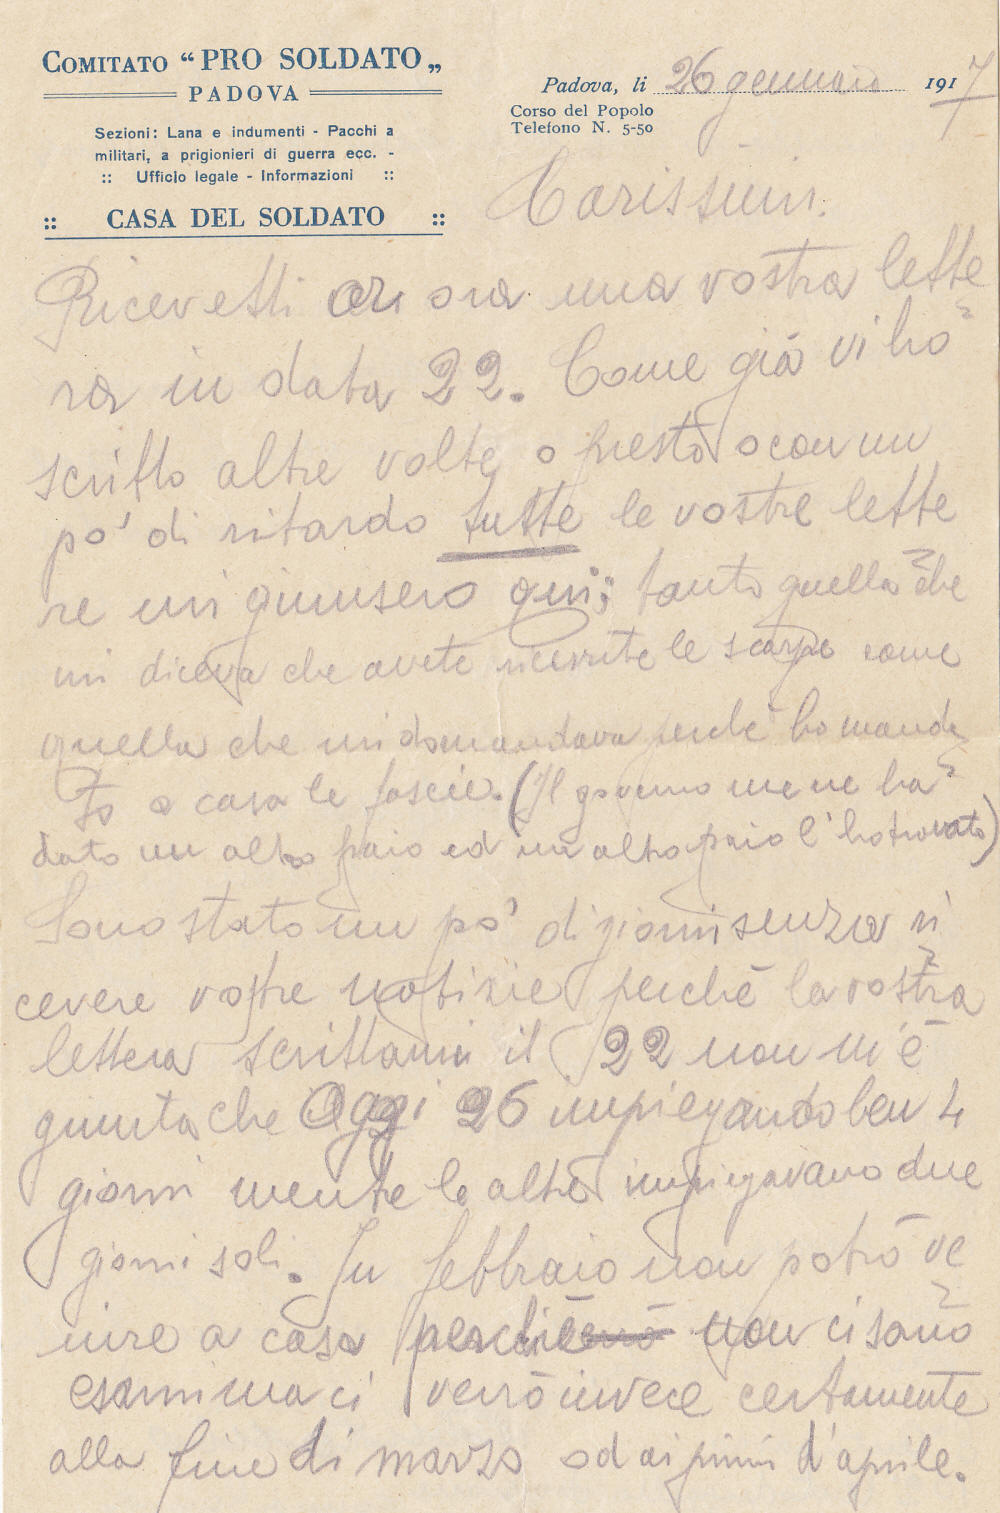 COMITATO “PRO SOLDATO„
PADOVA
Sezioni: Lana e indumenti - Pacchi a
militari, a prigionieri di guerra ecc. -
:: Ufficio legale - Informazioni ::
:: CASA DEL SOLDATO ::
Padova, li 26 gennaio 1917
Corso del Popolo
Telefono N. 5-50
Carissimi.
Ricevetti or ora una vostra lette
ra in data 22. Come già vi ho
scritto altre volte o presto o con un
po' di ritardo tutte le vostre lette
re mi giunsero qui; tanto quella che
mi diceva che avete ricevute le scarpe come
quella che mi domandava perchè ho manda
to a casa le fascie. (Il governo me ne ha
dato un altro paio ed un altro paio l'ho trovato)
Sono stato un po' di giorni senza ri
cevere vostre notizie perchè la vostra
lettera scrittami il 22 non m'è
giunta che Oggi 26 impiegando ben 4
giorni mentre le altre impiegavano due
giorni soli. In febbraio non potrò ve
nire a casa perchè non ci sarò
esami ma ci verrò invece certamente
alla fine di marzo od ai primi d'aprile.